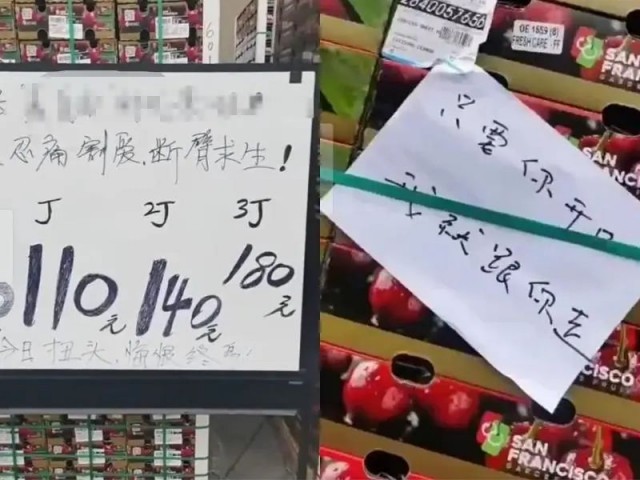 忍痛割爱,断臂求生!
J 2J 3J
110元 140元 180元
今日扭头,悔恨终
2840057656
GE 1659 (6)
FRESH CARE - FF
SAN
FRANCISCO
只需你开口
我就跟你走
SAN
FRANCISCO